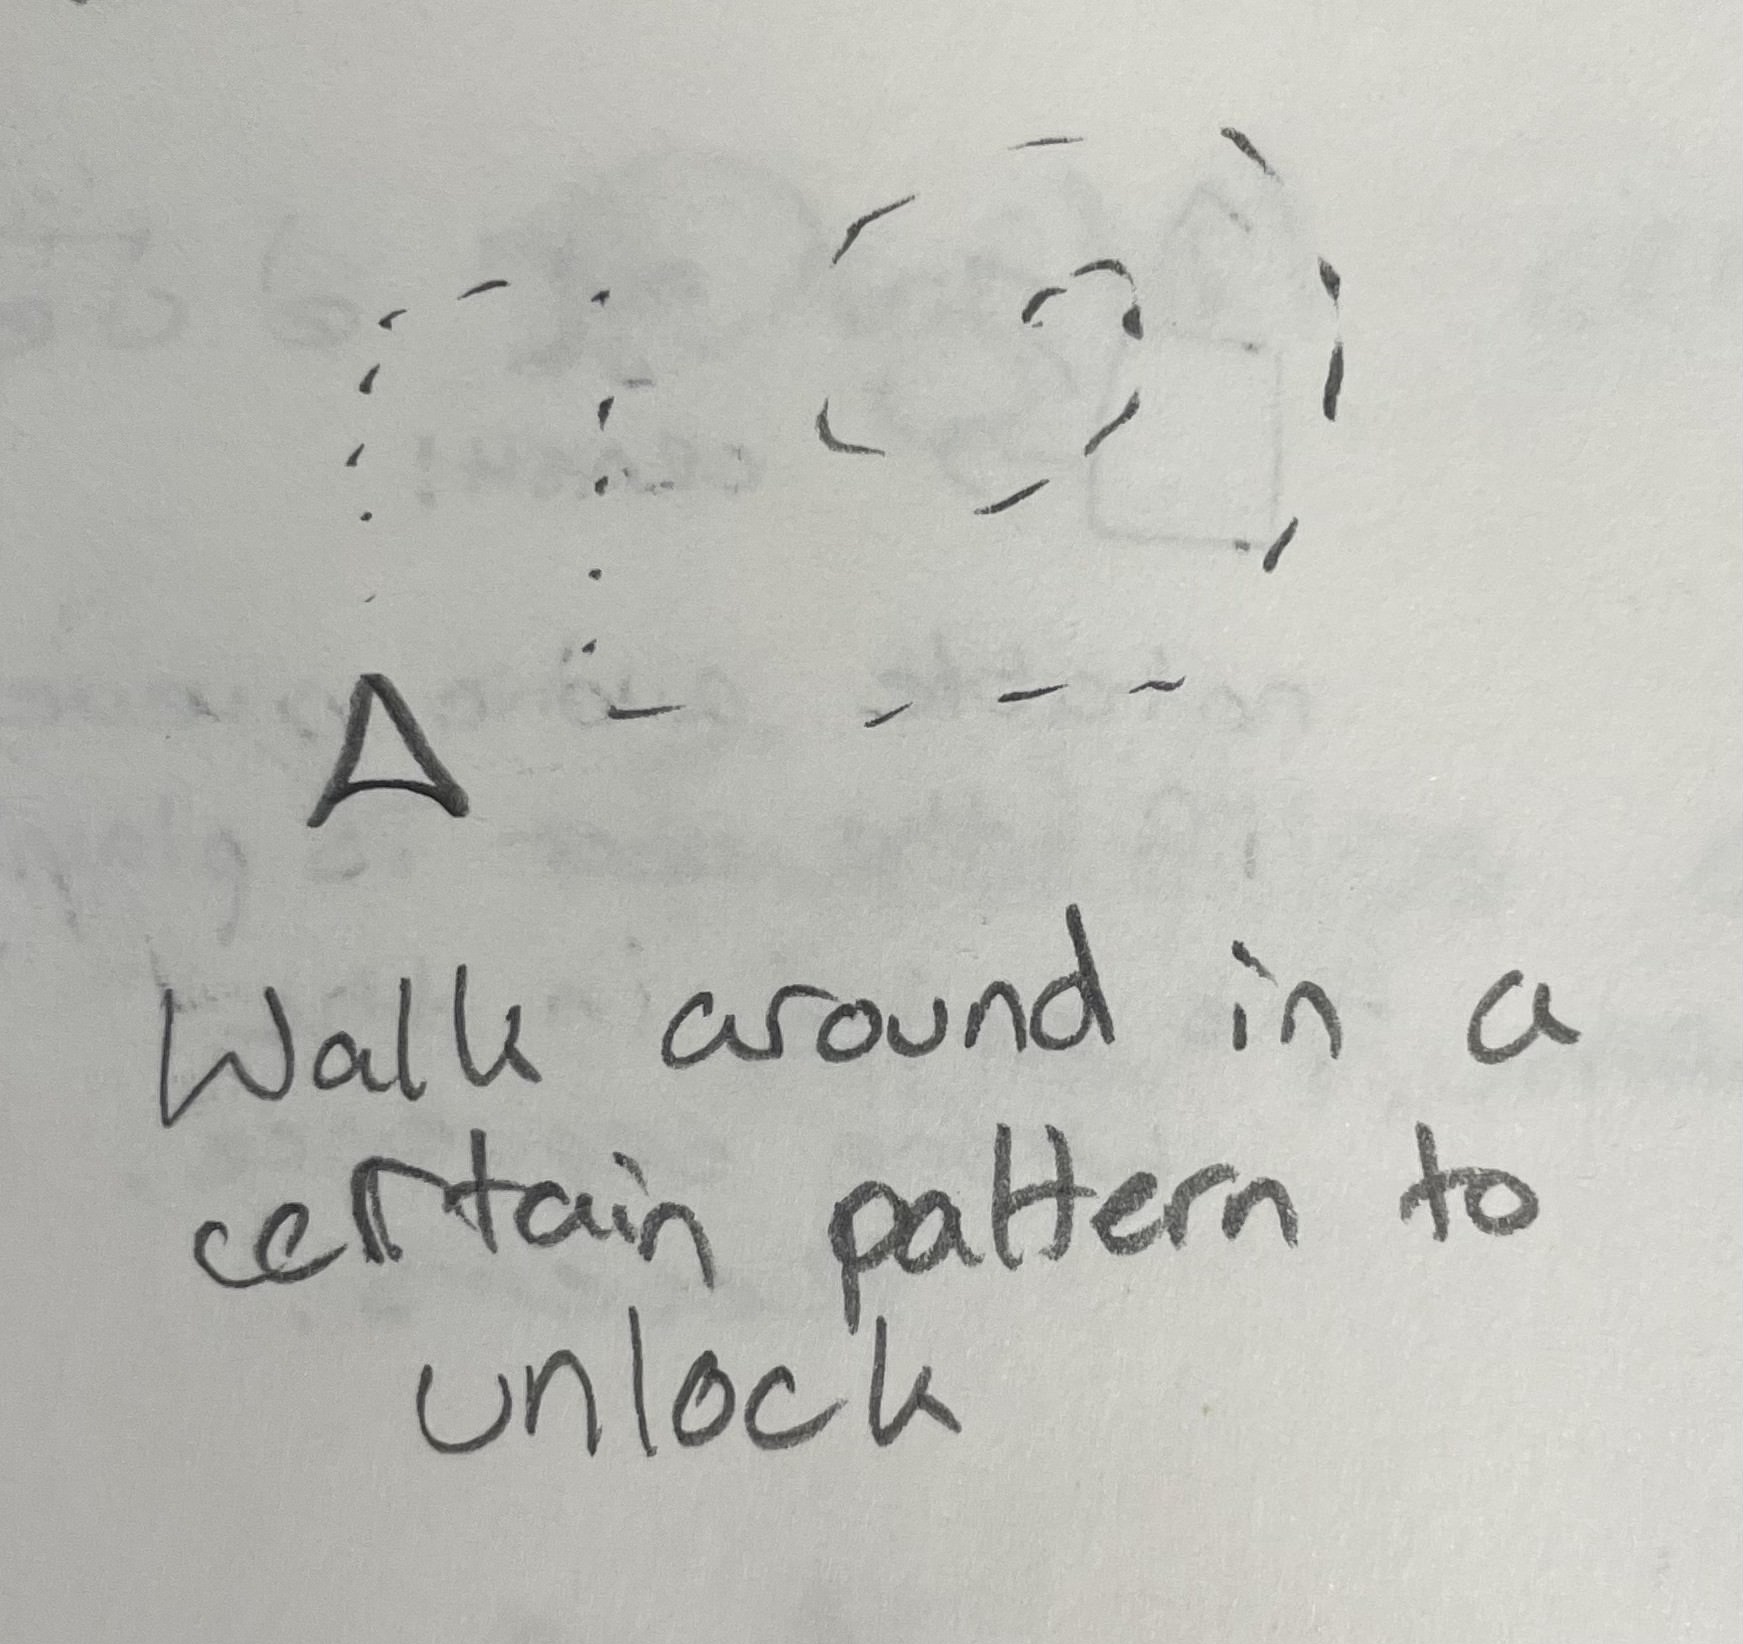 Walk around in a
certain pattern to
unlock